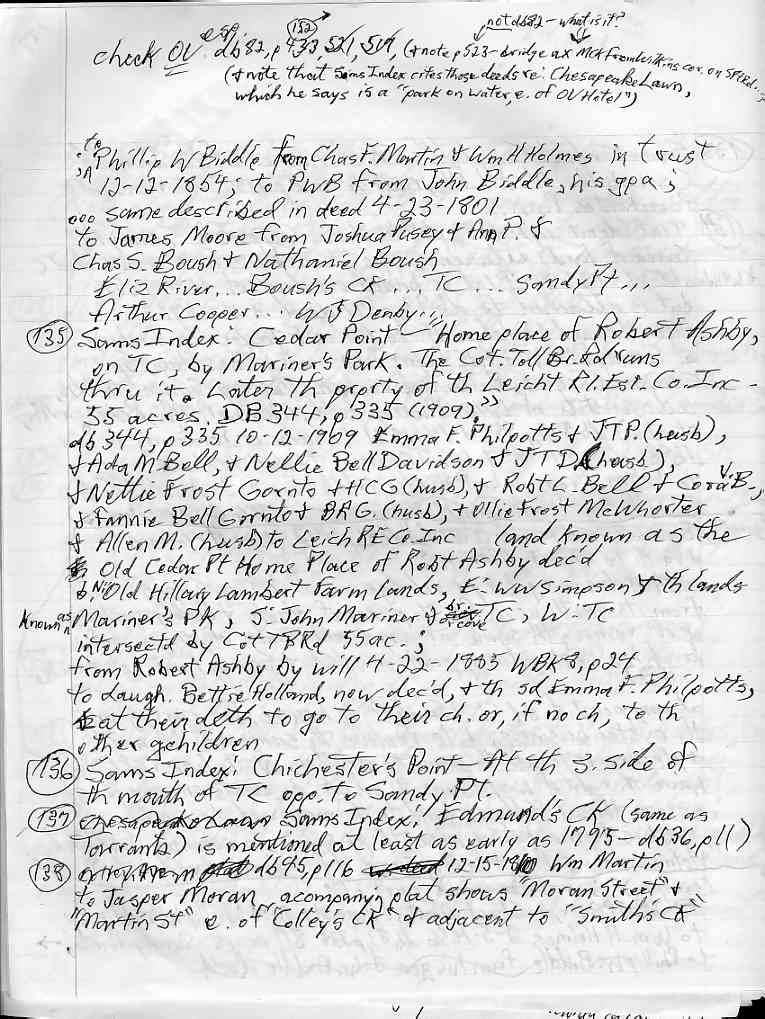 not db82 - what is it?
152
check OV esp db82, p433, 521, 519, (& note p523-bridge ax MCK from Watkins cor. on SPRd...
(& note that Sams Index cites those deeds re: Chesapeake Lawn,
which he says is a "park on water, e. of OV Hotel")
; to Phillip W Biddle from Chas F. Martin & Wm H Holmes in trust
12-12-1854; to PWB from John Biddle, his gpa;
... same described in deed 4-23-1801
to James Moore from Joshua Pusey & Ann P. &
Chas S. Boush & Nathaniel Boush
Eliz River... Boush's CK ... TC ... Sandy Pt...
Arthur Cooper... WS Denby...
135 Sams Index: Cedar Point - "Home place of Robert Ashby,
on TC, by Mariner's Park. The Cot. Toll Br. Rd runs
thru it. Later th prprty of th Leicht Rl. Est. Co. Inc -
55 acres. DB344, p335 (1909)."
db344, p335 10-12-1909 Emma F. Philpotts & JTP. (husb),
& Ada M. Bell, & Nellie Bell Davidson & JTD (husb),
& Nettie Frost Gornto & HCG (husb), & Robt L. Bell & Cora B.,
& Fannie Bell Gornto & BRG. (husb), & Ollie Frost McWhorter
& Allen M. (husb) to Leich RE Co. Inc (and known as the
Old Cedar Pt Home Place of Robt Ashby dec'd
b. N: Old Hillary Lambert Farm Lands, E: WW Simpson & th lands
known as Mariner's PK, S: John Mariner & br. or cove TC, W: TC
intersectd by Cot TBRd 55ac.;
from Robert Ashby by will 4-22-1885 WBK8, p24
to daugh. Bettie Holland, now dec'd, & th sd Emma F. Philpotts,
& at their deth to go to their ch. or, if no ch, to th
other gchildren
136 Sams Index: Chichester's Point - At th s. side of
th mouth of TC opp. to Sandy Pt.
137 Sams Index: Edmund's CK (same as
Tarrants) is mentioned at least as early as 1795 - db36, p11)
138 db95, p116 12-15-1910 Wm Martin
to Jasper Moran, acompanyin plat shows "Moran Street" &
"Martin St" e. of "Colley's CK" & adjacent to "Smith's CK"